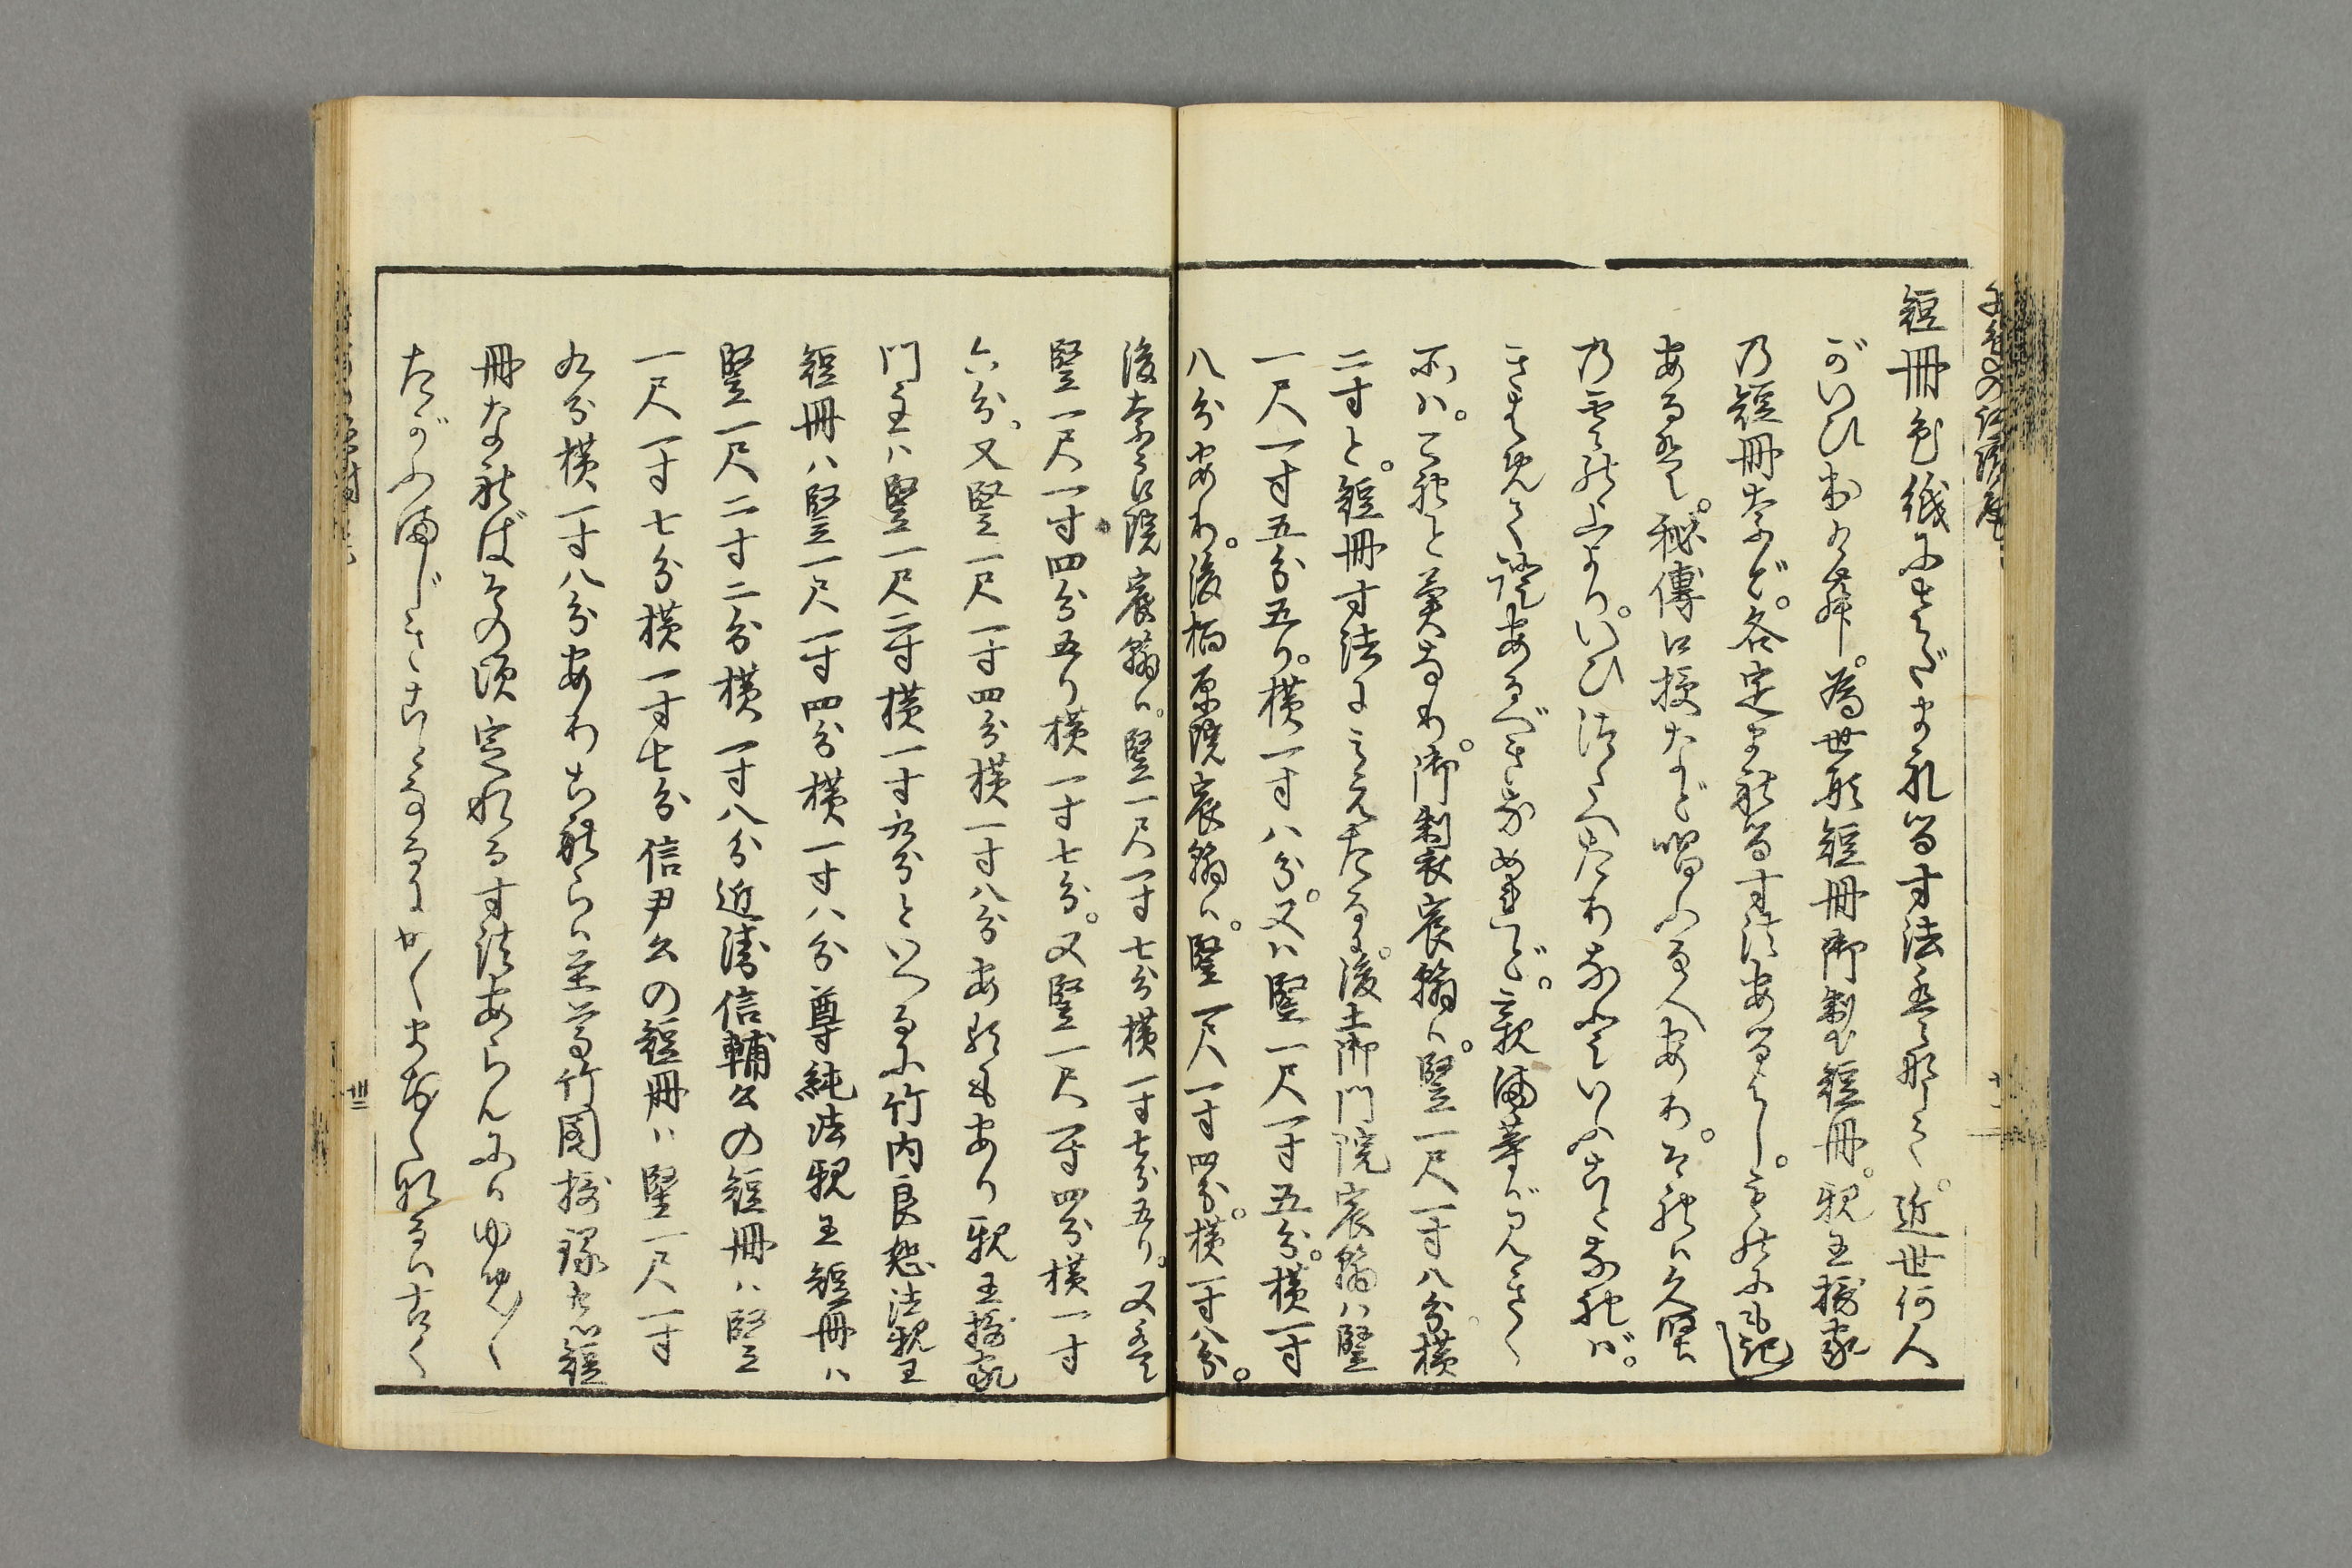 短冊色紙にさだまれる寸法㕝なく。近世何人
がいひ出けむ。為世形短冊御製短冊。親王摂家
乃短冊など。各定まれる寸法あるよし。ものにも記し
あるは。秘傳口授など唱ふる人あり。それは久堅
乃雲のよそより。いひ伝へたりなどいふことなれば。
さてもあるべきなめれど。親満等が見きく
所は。これと異なり。御製宸翰は。竪一尺一寸八分横
二寸と。短冊寸法に見えたるに。後土御門院宸翰ハ竪
一尺一寸五分五り。横一寸八分。又ハ竪一尺一寸五分。横一寸
八分あり。後柏原院宸翰は。竪一尺一寸四分。横一寸八分。
後奈良院宸翰は。竪一尺一寸七分横一寸七分五り。又は
竪一尺一寸四分五り横一寸七分。又竪一尺一寸四分横一寸
六分。又竪一尺一寸四分横一寸八分あるもあり親王摂家
門主ハ竪一尺二寸横一寸九分といへるに竹内良恕法親王
短冊ハ竪一尺一寸四分横一寸八分尊純法親王短冊ハ
竪一尺二寸二分横一寸八分近衛信輔公の短冊ハ竪
一尺一寸七分横一寸七分信尹公の短冊ハ竪一尺一寸
九分横一寸八分ありこれらは至尊竹園摂録の短
冊なればその頃定れる寸法あらんにはゆめ〳〵
たがふまじきことなるにかくまち〳〵なるは古く